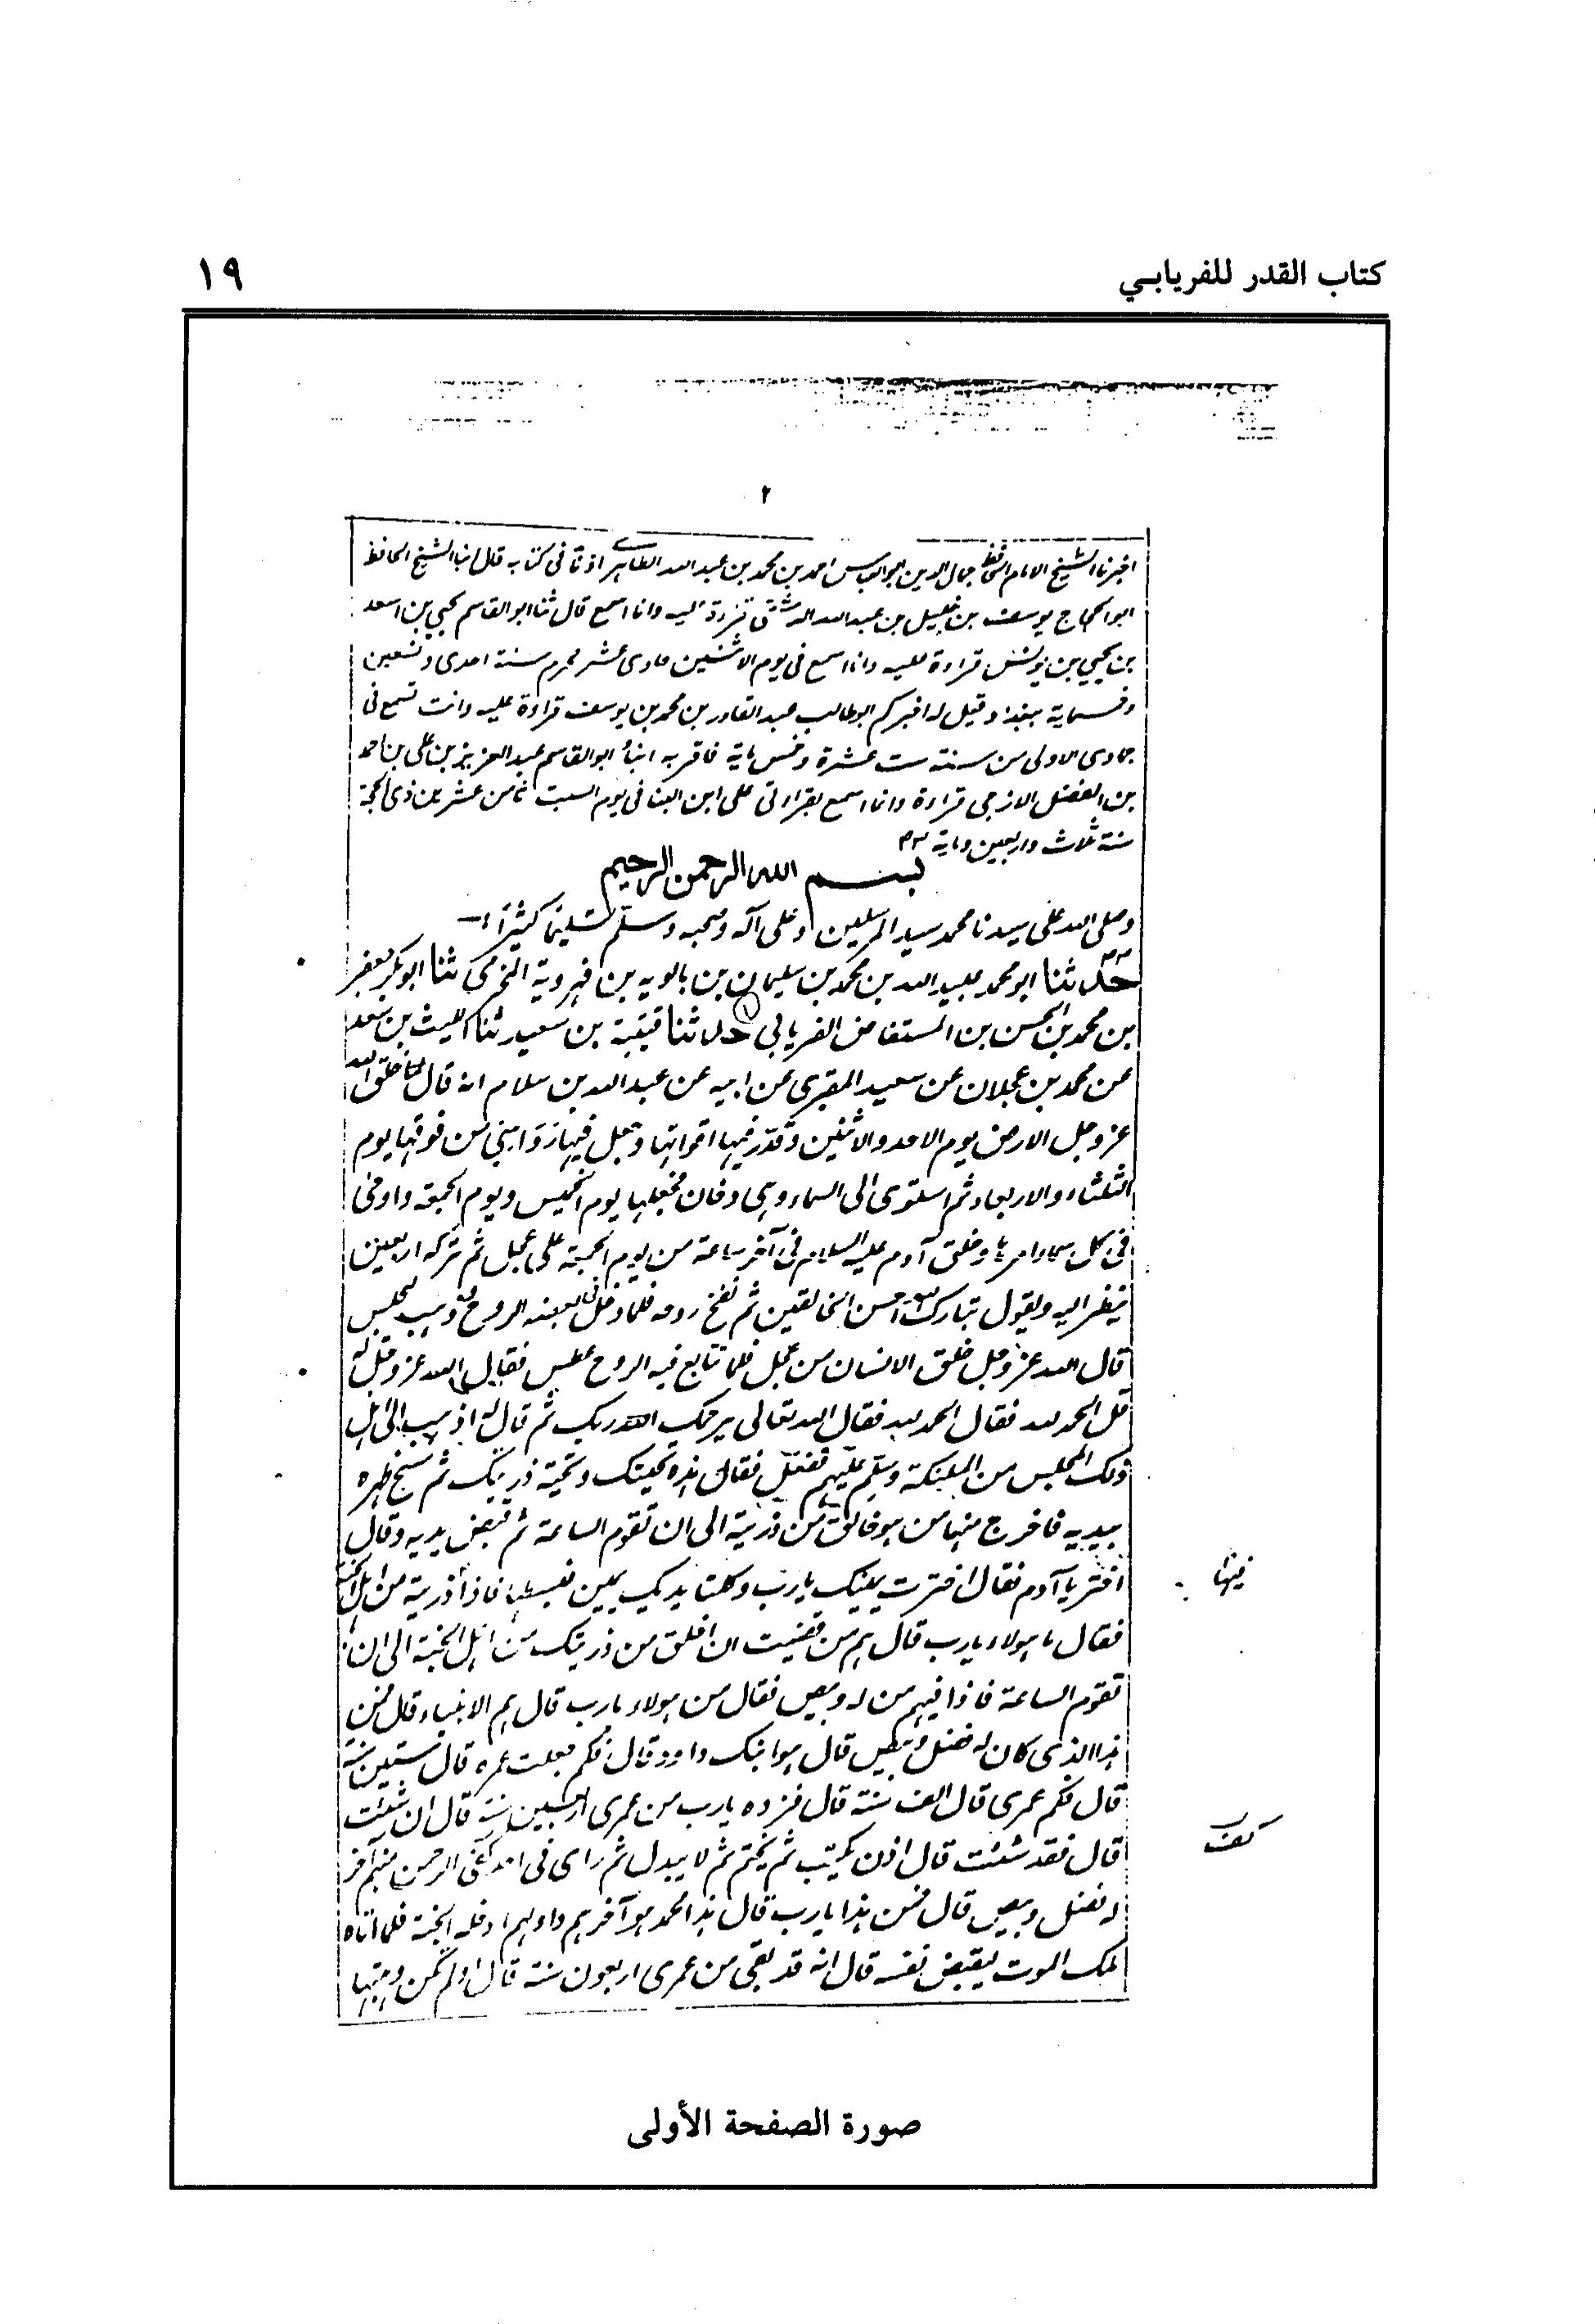 كتاب القدر للفريابي
١٩
٢
اخبرنا الشيخ الامام الحافظ جمال الدين ابو العباس احمد بن محمد بن عبد الله الظاهري اذنا في كتابه قال انبا الشيخ الحافظ
ابو الحجاج يوسف بن خليل بن عبد الله الدمشقي قراءة عليه وانا اسمع قال ثنا ابو القاسم يحيى بن اسعد
بن يحيى بن يونس قراءة عليه وانا اسمع في يوم الاثنين حادى عشر محرم سنة احدى وتسعين
وخمسماية ببغداد قيل له اخبركم ابو طالب عبد القادر بن محمد بن يوسف قراءة عليه وانت تسمع في
جمادى الاولى من سنة ست عشرة وخمس ماية فاقر به انبأ ابو القاسم عبد العزيز بن على بن احمد
بن الفضل الازجى قراءة وانا اسمع بقراءتى على ابن البنا في يوم السبت ثامن عشر من ذي الحجة
سنة ثلاث واربعين وماية
بسم الله الرحمن الرحيم
وصلى الله على سيدنا محمد سيد المرسلين وعلى آله وصحبه وسلم تسليما كثيرًا
حدثنا ابو محمد عبيد الله بن محمد بن سليمان بن بالويه بن فهروية المخرمى ثنا ابو بكر جعفر
بن محمد بن الحسن بن المستفاض الفريابي حدثنا قتيبة بن سعيد ثنا الليث بن سعد
عن محمد بن عجلان عن سعيد المقبرى عن ابيه عن عبد الله بن سلام انه قال خلق الله
عز وجل الارض يوم الاحد والاثنين وقدر فيها اقواتها وجعل فيها رواسي من فوقها يوم
الثلثاء والاربعاء ثم استوى الى السماء وهى دخان فخلقها يوم الخميس ويوم الجمعة واوحى
في كل سماء امرها وخلق آدم عليه السلام في آخر ساعة من يوم الجمعة على عجل ثم تركه اربعين
ينظر اليه ويقول تبارك الله احسن الخالقين ثم نفخ روحه فلما دخل في بعضه الروح ذهب ليجلس
قال الله عز وجل خلق الانسان من عجل فلما تتابع فيه الروح عطس فقال الله عز وجل له
قل الحمد لله فقال الحمد لله فقال الله تعالى يرحمك الله ربك ثم قال له اذهب الى اهل
ذلك المجلس من الملئكة وسلم عليهم ففعل فقال هذه تحيتك وتحية ذريتك ثم مسح ظهره
بيديه فاخرج منها من هو خالق من ذريته الى ان تقوم الساعة ثم قبض يديه وقال
اختر يا آدم فقال اخترت يمينك يا رب وكلتا يديك يمين فبسطها فاذا ذريته من اهل الجنة
فقال ما هولاء يا رب قال هم من قضيت ان اخلق من ذريتك من اهل الجنة الى ان
تقوم الساعة فاذا فيهم من له وبيص فقال من هولاء يا رب قال هم الانبياء قال فمن
هذا الذى كان له فضل وبيص قال هو ابنك داود قال فكم جعلت عمره قال ستين سنة
قال فكم عمرى قال الف سنة قال فزده يا رب من عمرى اربعين سنة قال ان شئت
قال فقد شئت قال اذن يكتب ثم يختم ثم لا يبدل ثم راى في اخر كف الرحمن منهم آخر
له فضل وبيص قال فمن هذا يا رب قال هذا محمد هو آخرهم واولهم ادخله الجنة فلما اتاه
ملك الموت ليقبض نفسه قال انه قد بقى من عمرى اربعون سنة قال اولم تكن وهبتها
فيها
كف
صورة الصفحة الأولى